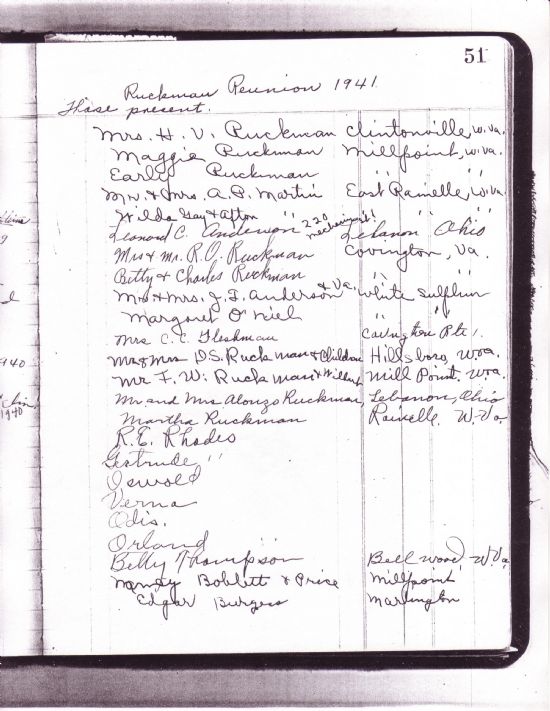 51
Ruckman Reunion 1941
Those present.
Mrs. H. V. Ruckman Clintonville, W. Va.
Maggie Ruckman Millpoint, W. Va.
Early Ruckman
Mr. & Mrs. A. P. Martin East Rainelle, W. Va.
Wilda Gay & Afton " " "
Leonard C. Anderson 220 Mechanic St. Lebanon Ohio
Mrs & Mr. R. O. Ruckman Covington, Va.
Betty & Charles Ruckman "
Mr & Mrs. J. F. Anderson & Va. White Sulphur
Margaret O'Niel "
Mrs C. C. Fleshman Covington Rte 1.
Mr & Mrs D S. Ruckman & Children Hillsboro, W. Va.
Mr F. W. Ruckman & Mill Point. W. Va.
Mr and Mrs Alonzo Ruckman, Lebanon, Ohio
Martha Ruckman Rainelle. W. Va.
R. E. Rhodes
Gertrude "
Oswold
Verna
Odis.
Orland
Betty Thompson Bellwood W. Va
Nancy Boblett & Price Millpoint
Edgar Burgess Marlington
1940
1940